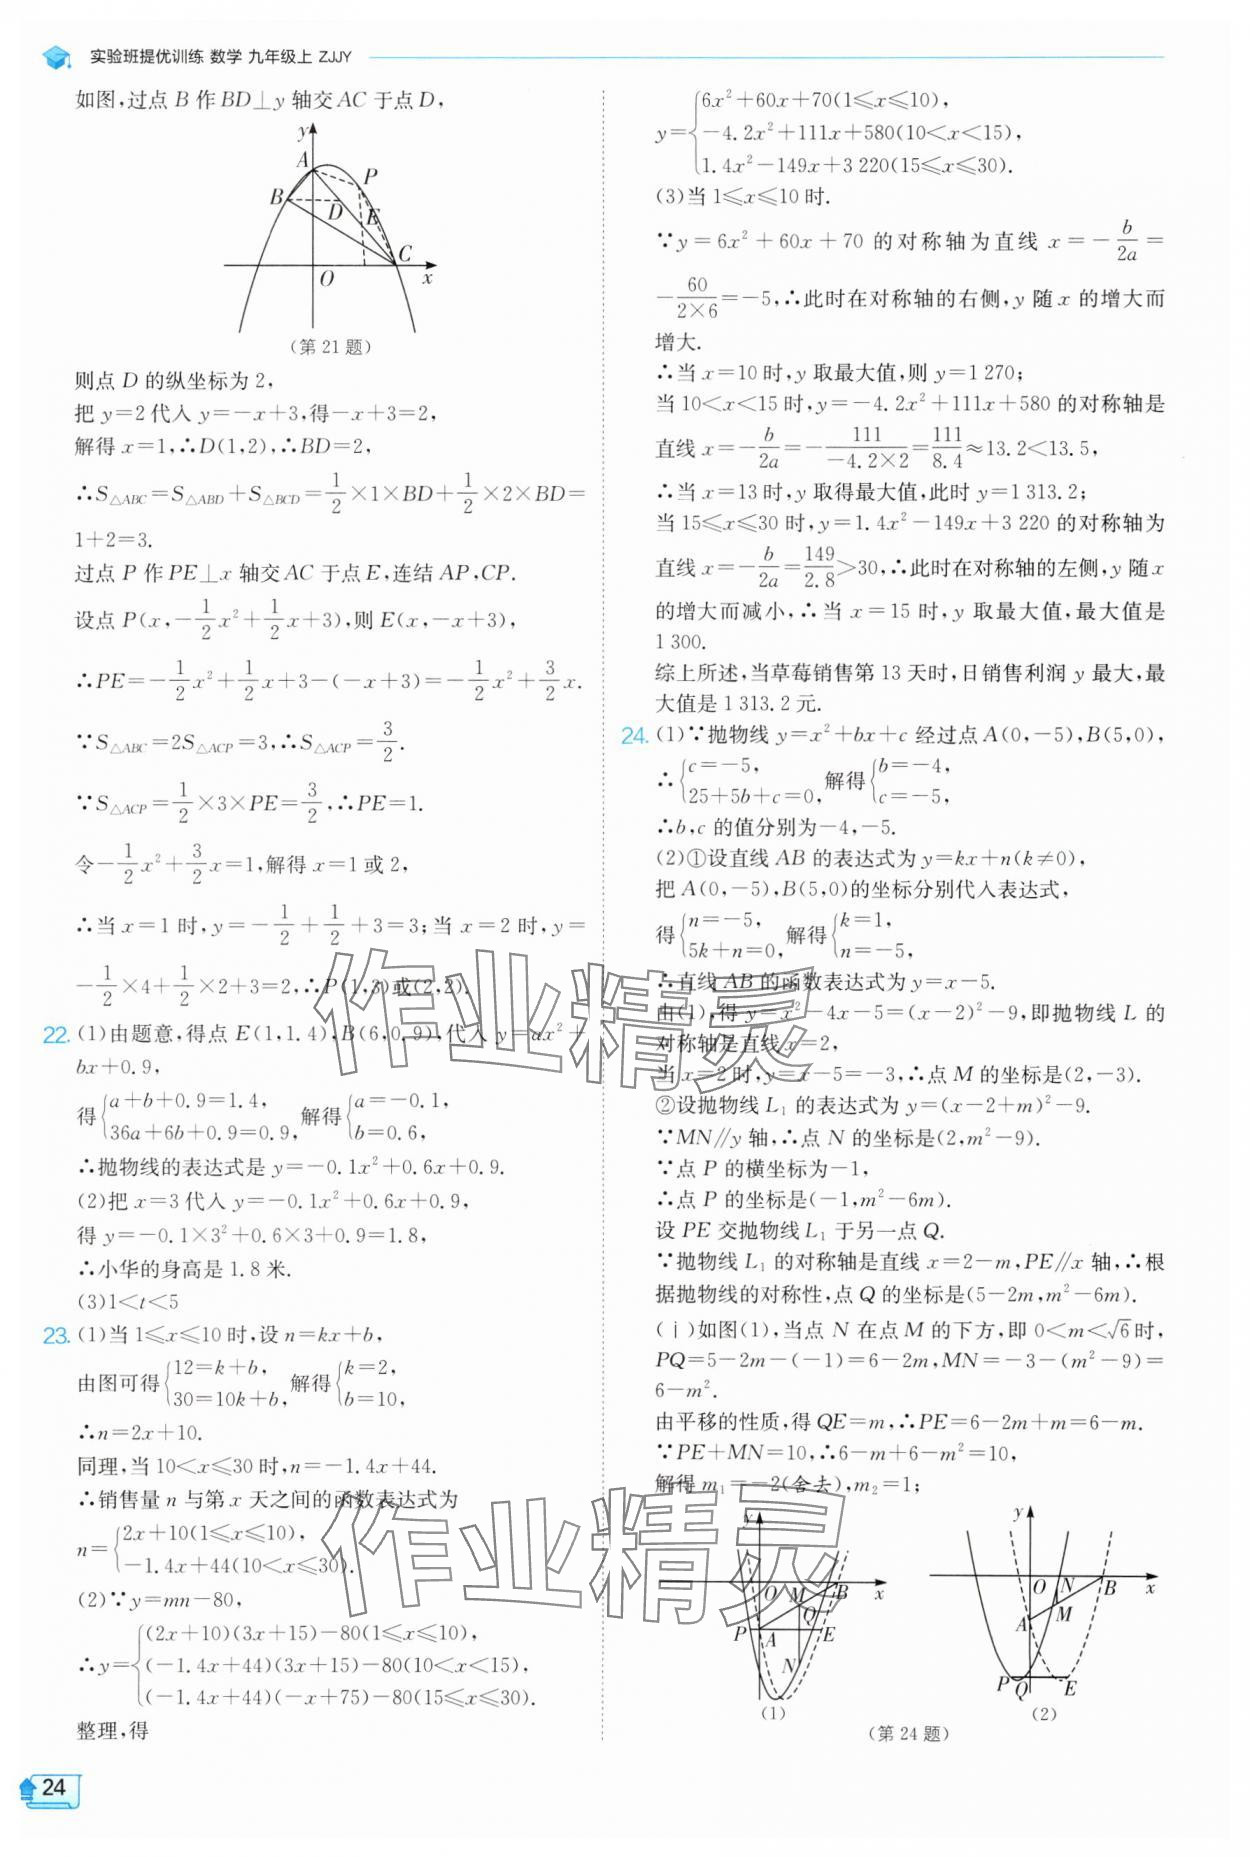 实验班提优训练 数学 九年级上 ZJJY
如图,过点 B 作 BD⊥y 轴交 AC 于点 D,
y
A
P
B
D
E
C
O
x
(第 21 题)
则点 D 的纵坐标为 2,
把 y=2 代入 y=-x+3,得-x+3=2,
解得 x=1,∴D(1,2),∴BD=2,
∴S△ABC=S△ABD+S△BCD=1/2×1×BD+1/2×2×BD=
1+2=3.
过点 P 作 PE⊥x 轴交 AC 于点 E,连结 AP,CP.
设点 P(x,-1/2x²+1/2x+3),则 E(x,-x+3),
∴PE=-1/2x²+1/2x+3-(-x+3)=-1/2x²+3/2x.
∵S△ABC=2S△ACP=3,∴S△ACP=3/2.
∵S△ACP=1/2×3×PE=3/2,∴PE=1.
令-1/2x²+3/2x=1,解得 x=1 或 2,
∴当 x=1 时,y=-1/2+1/2+3=3;当 x=2 时,y=
-1/2×4+1/2×2+3=2,∴P(1,3)或(2,2).
22. (1)由题意,得点 E(1,1.4),B(6,0.9),代入 y=ax²+
bx+0.9,
得{a+b+0.9=1.4, 36a+6b+0.9=0.9, 解得{a=-0.1, b=0.6,
∴抛物线的表达式是 y=-0.1x²+0.6x+0.9.
(2)把 x=3 代入 y=-0.1x²+0.6x+0.9,
得 y=-0.1×3²+0.6×3+0.9=1.8,
∴小华的身高是 1.8 米.
(3)1<t<5
23. (1)当 1≤x≤10 时,设 n=kx+b,
由图可得{12=k+b, 30=10k+b, 解得{k=2, b=10,
∴n=2x+10.
同理,当 10<x≤30 时,n=-1.4x+44.
∴销售量 n 与第 x 天之间的函数表达式为
n={2x+10(1≤x≤10), -1.4x+44(10<x≤30).
(2)∵y=mn-80,
∴y={(2x+10)(3x+15)-80(1≤x≤10),
(-1.4x+44)(3x+15)-80(10<x<15),
(-1.4x+44)(-x+75)-80(15≤x≤30).
整理,得
24
y={6x²+60x+70(1≤x≤10),
-4.2x²+111x+580(10<x<15),
1.4x²-149x+3 220(15≤x≤30).
(3)当 1≤x≤10 时.
∵y=6x²+60x+70 的对称轴为直线 x=-b/2a=
-60/2×6=-5,∴此时在对称轴的右侧,y 随 x 的增大而
增大.
∴当 x=10 时,y 取最大值,则 y=1 270;
当 10<x<15 时,y=-4.2x²+111x+580 的对称轴是
直线 x=-b/2a=-111/-4.2×2=111/8.4≈13.2<13.5,
∴当 x=13 时,y 取得最大值,此时 y=1 313.2;
当 15≤x≤30 时,y=1.4x²-149x+3 220 的对称轴为
直线 x=-b/2a=149/2.8>30,∴此时在对称轴的左侧,y 随 x
的增大而减小,∴当 x=15 时,y 取最大值,最大值是
1 300.
综上所述,当草莓销售第 13 天时,日销售利润 y 最大,最
大值是 1 313.2 元.
24. (1)∵抛物线 y=x²+bx+c 经过点 A(0,-5),B(5,0),
∴{c=-5, 25+5b+c=0, 解得{b=-4, c=-5,
∴b,c 的值分别为-4,-5.
(2)①设直线 AB 的表达式为 y=kx+n(k≠0),
把 A(0,-5),B(5,0)的坐标分别代入表达式,
得{n=-5, 5k+n=0, 解得{k=1, n=-5,
∴直线 AB 的函数表达式为 y=x-5.
由(1),得 y=x²-4x-5=(x-2)²-9,即抛物线 L 的
对称轴是直线 x=2,
当 x=2 时,y=x-5=-3,∴点 M 的坐标是(2,-3).
②设抛物线 L₁ 的表达式为 y=(x-2+m)²-9.
∵MN∥y 轴,∴点 N 的坐标是(2,m²-9).
∵点 P 的横坐标为-1,
∴点 P 的坐标是(-1,m²-6m).
设 PE 交抛物线 L₁ 于另一点 Q.
∵抛物线 L₁ 的对称轴是直线 x=2-m,PE∥x 轴,∴根
据抛物线的对称性,点 Q 的坐标是(5-2m,m²-6m).
(ⅰ)如图(1),当点 N 在点 M 的下方,即 0<m<√6时,
PQ=5-2m-(-1)=6-2m,MN=-3-(m²-9)=
6-m².
由平移的性质,得 QE=m,∴PE=6-2m+m=6-m.
∵PE+MN=10,∴6-m+6-m²=10,
解得 m₁=-2(舍去),m₂=1;
y
O
M
B
x
Q
P
A
E
N
(1)
y
O
N
B
x
A
M
P
Q
E
(2)
(第 24 题)
作业精灵
作业精灵